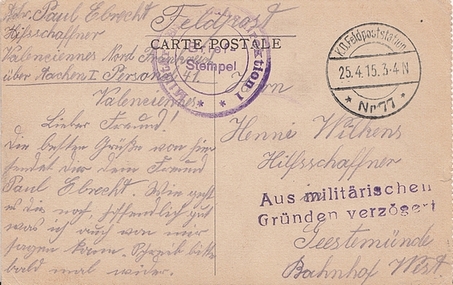 Abs. Paul Ebrecht
Hilfsschaffner
Valenciennes Nord Frankreich
über Aachen I Personal 41.
Feldpost
CARTE POSTALE
Stempel
K.D. Feldpoststation
25.4.15. 3-4 N
* Nr 77 *
Herrn
Henne Wilkens
Hilfsschaffner
in
Geestemünde
Bahnhof West.
Aus militärischen
Gründen verzögert
Valenciennes
Lieber Freund!
Die besten Grüße von hier
sendet dir dein Freund
Paul Ebrecht. Wie geht
es dir noch, hoffendlich gut
was ich auch von mir
sagen kann. Schreib bitte
bald mal wider.